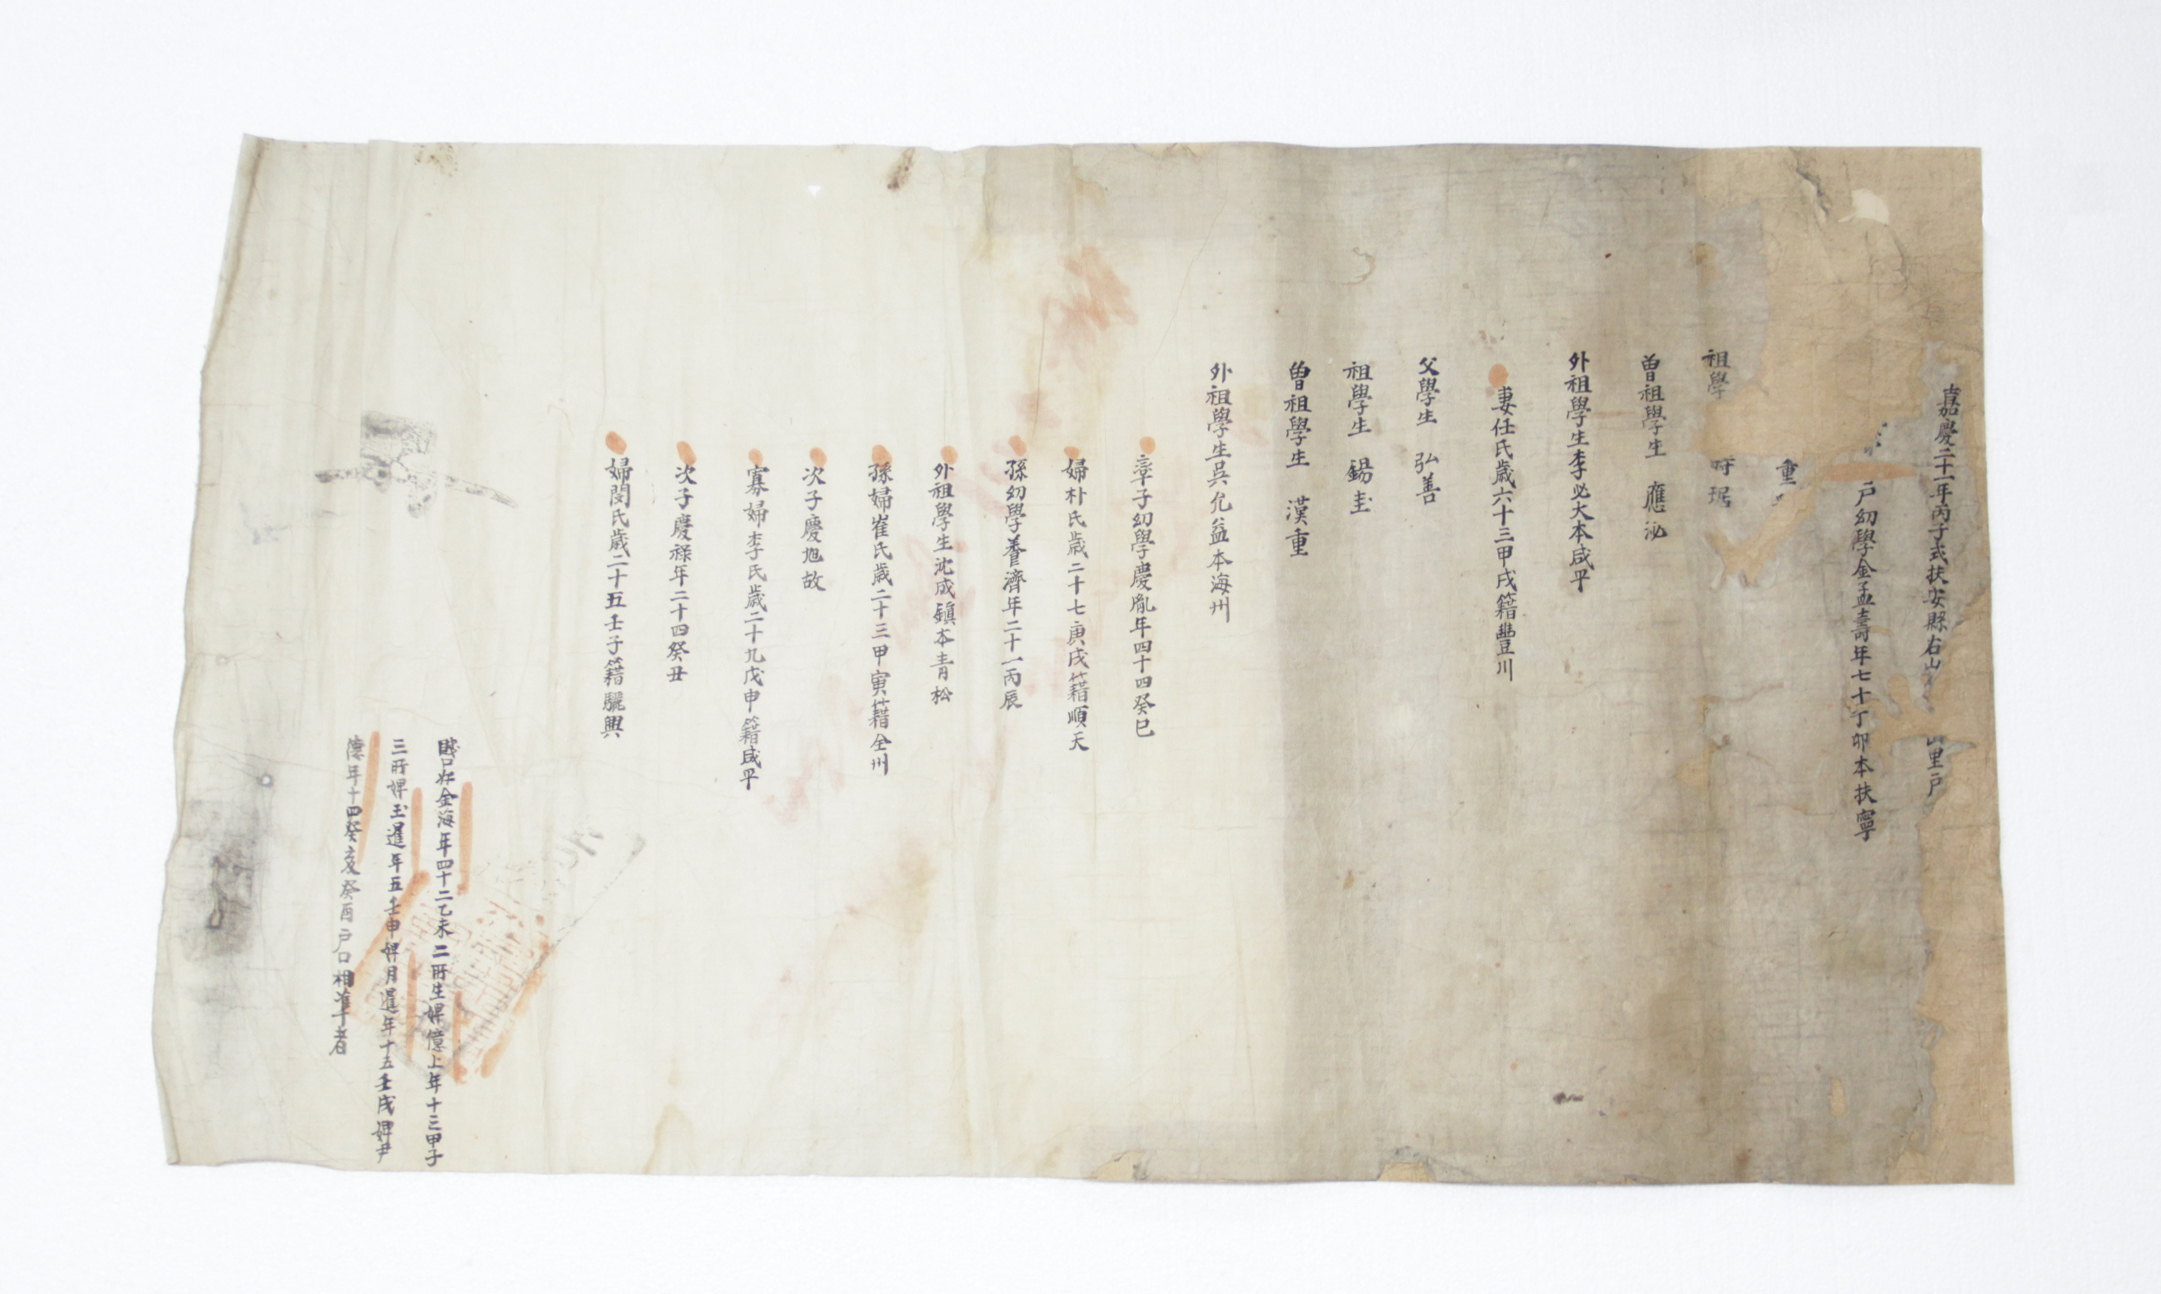 嘉慶二十一年丙子式扶安縣右山里戶
戶幼學金孟壽年七十丁卯本扶寧
重
祖學 時琚
曾祖學生 應泌
外祖學生李必大本咸平
妻任氏歲六十三甲戌籍豐川
父學生 弘善
祖學生 錫圭
曾祖學生 漢重
外祖學生吳允益本海州
率子幼學慶胤年四十四癸巳
婦朴氏歲二十七庚戌籍順天
孫幼學養濟年二十一丙辰
外祖學生沈成鎮本青松
孫婦崔氏歲二十三甲寅籍全州
次子慶旭故
寡婦李氏歲二十九戊申籍咸平
次子慶祿年二十四癸丑
婦閔氏歲二十五壬子籍驪興
賤口奴金海年四十二乙未二所生婢億上年十三甲子
三所婢玉暹年五壬申婢月暹年十五壬戌婢尹
德年十四癸亥癸酉戶口相準者